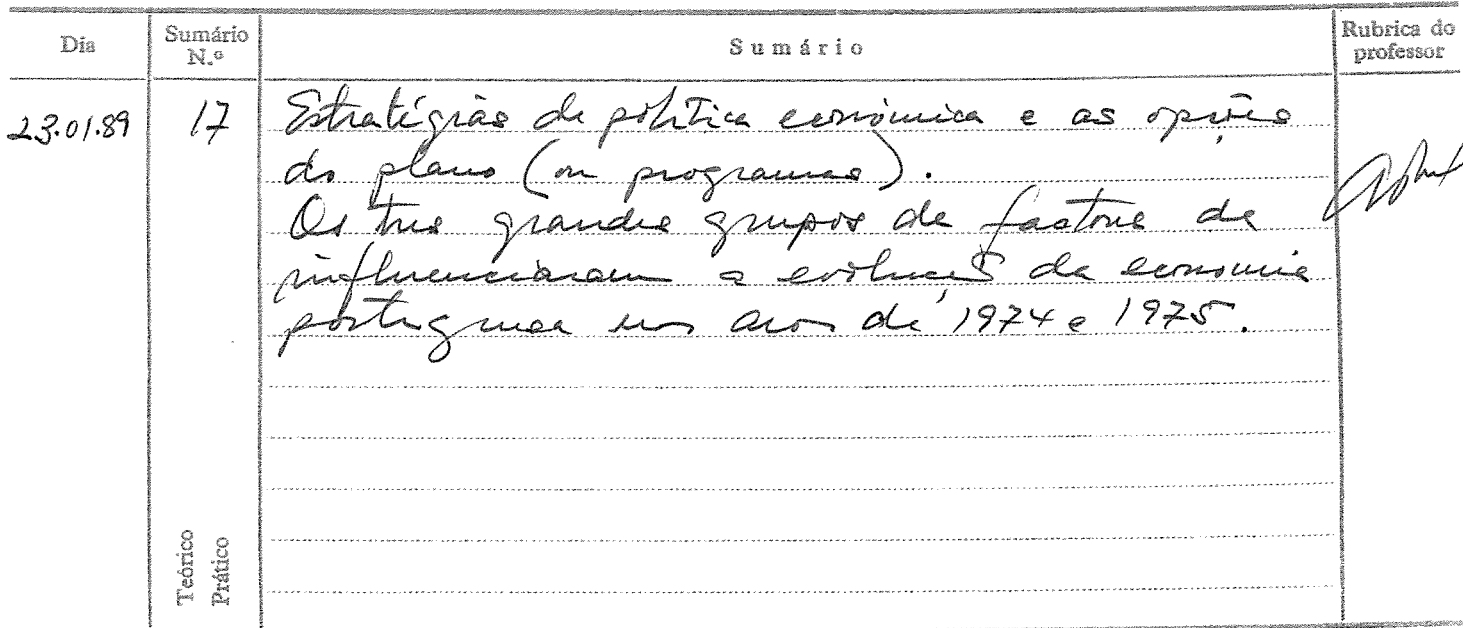 Dia Sumário N.º Sumário Rubrica do professor
23.01.89 17 Estratégias de política económica e as opções
do plano (ou programas).
Os tres grandes grupos de factores de
influenciaram a evolução da economia
portuguesa nos anos de 1974 e 1975.
Teórico
Prático